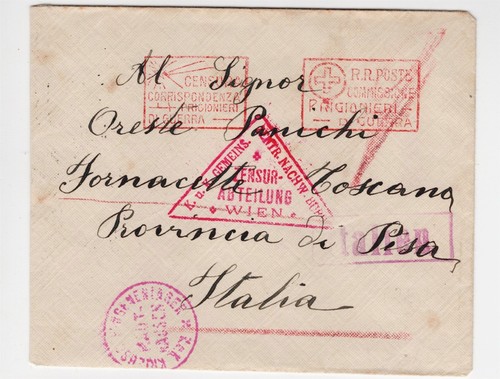 CENSURA
CORRISPONDENZA
PRIGIONIERI
DI GUERRA
R.R. POSTE
COMMISSIONE
PRIGIONIERI
DI GUERRA
Al Signor
Oreste Panichi
Fornacette Toscana
Provincia di Pisa
Italia
K. u. K. GEMEINS. ZENTR. NACHW. BUR.
ZENSUR-
ABTEILUNG
WIEN
Italien
MAUT-
HAUSEN